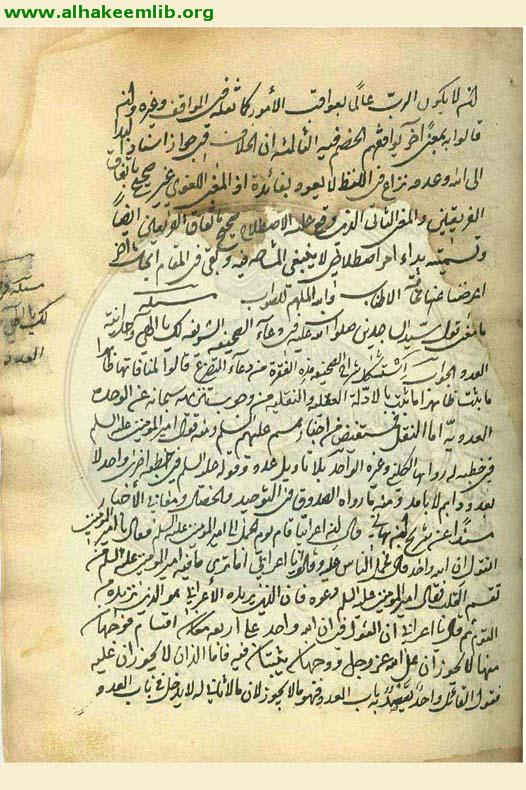 www.alhakeemlib.org
لا يكون الرب عالما بعواقب الأمور كما نقله في المواقف وغيره
قالوا به بمعنى آخر يوافقهم الخصم فيه الثالثة ان الخلاف في جواز اسناد البداء
الى الله وحده نزاع في اللفظ لا يعود بفائدة اذ المعنى اللغوي غير صحيح باتفاق
الفريقين والمعنى الثاني الذي وقع عليه الاصطلاح صحيح باتفاق الفريقين ايضا
وتسميته بداء امر اصطلاحي لا ينبغي المشاحة فيه وبقي في المقام ابحاث
اعرضنا عنها والله الملهم للصواب مسئلة
ما معنى قول سيد الساجدين صلوات الله عليه في دعاء الصحيفة الشريفة لك يا الهي وحدانية
العدد الجواب الصحيفة هذه الفقرة من دعاء قالوا لمنافاتها ظاهرا
ما ثبت بالادلة العقلية والنقلية من وجوب تنزيهه سبحانه عن الوحدة
العددية اما النقل فمستفيض من اخبارهم عليهم السلم ومنه قول امير المؤمنين عليه السلم
في خطبة له رواها الكليني وغيره الواحد بلا تأويل عدد وقوله عليه السلم في خطبة اخرى واحد لا
بعدد ودائم لا بامد ومنه ما رواه الصدوق في التوحيد والخصال ومعاني الأخبار
مسندا عن شريح بن هاني قال ان اعرابيا قام يوم الجمل الى امير المؤمنين عليه السلم فقال يا امير المؤمنين
اتقول ان الله واحد قال فحمل الناس عليه وقالوا يا اعرابي اما ترى ما فيه امير المؤمنين عليه السلم من
تقسم القلب فقال امير المؤمنين عليه السلم دعوه فان الذي يريده الأعرابي هو الذي نريده من
القوم ثم قال يا اعرابي ان القول في ان الله واحد على اربعة اقسام فوجهان
منها لا يجوزان على الله عز وجل ووجهان يثبتان فيه فاما اللذان لا يجوزان عليه
فقول القائل واحد يقصد به باب العدد فهو ما لا يجوز لان ما لا ثاني له لا يدخل في باب العدد
مسئلة
لك يا الهي
العدد